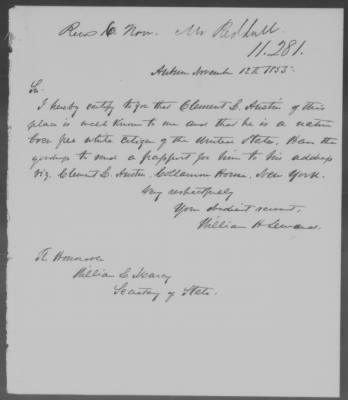 Recd 16 Nov. Mr Redhall
11.281.
Auburn November 12th 1853.
Sir
I hereby certify to you that Clement L. Austin of this
place is well known to me and that he is a native
born free white citizen of the United States. Have the
goodness to send a passport for him to his address
viz. Clement L. Austin, Collamore House, New York.
Very respectfully
Your obedient servant,
William H Seward.
The Honorable
William L Marcy
Secretary of State.